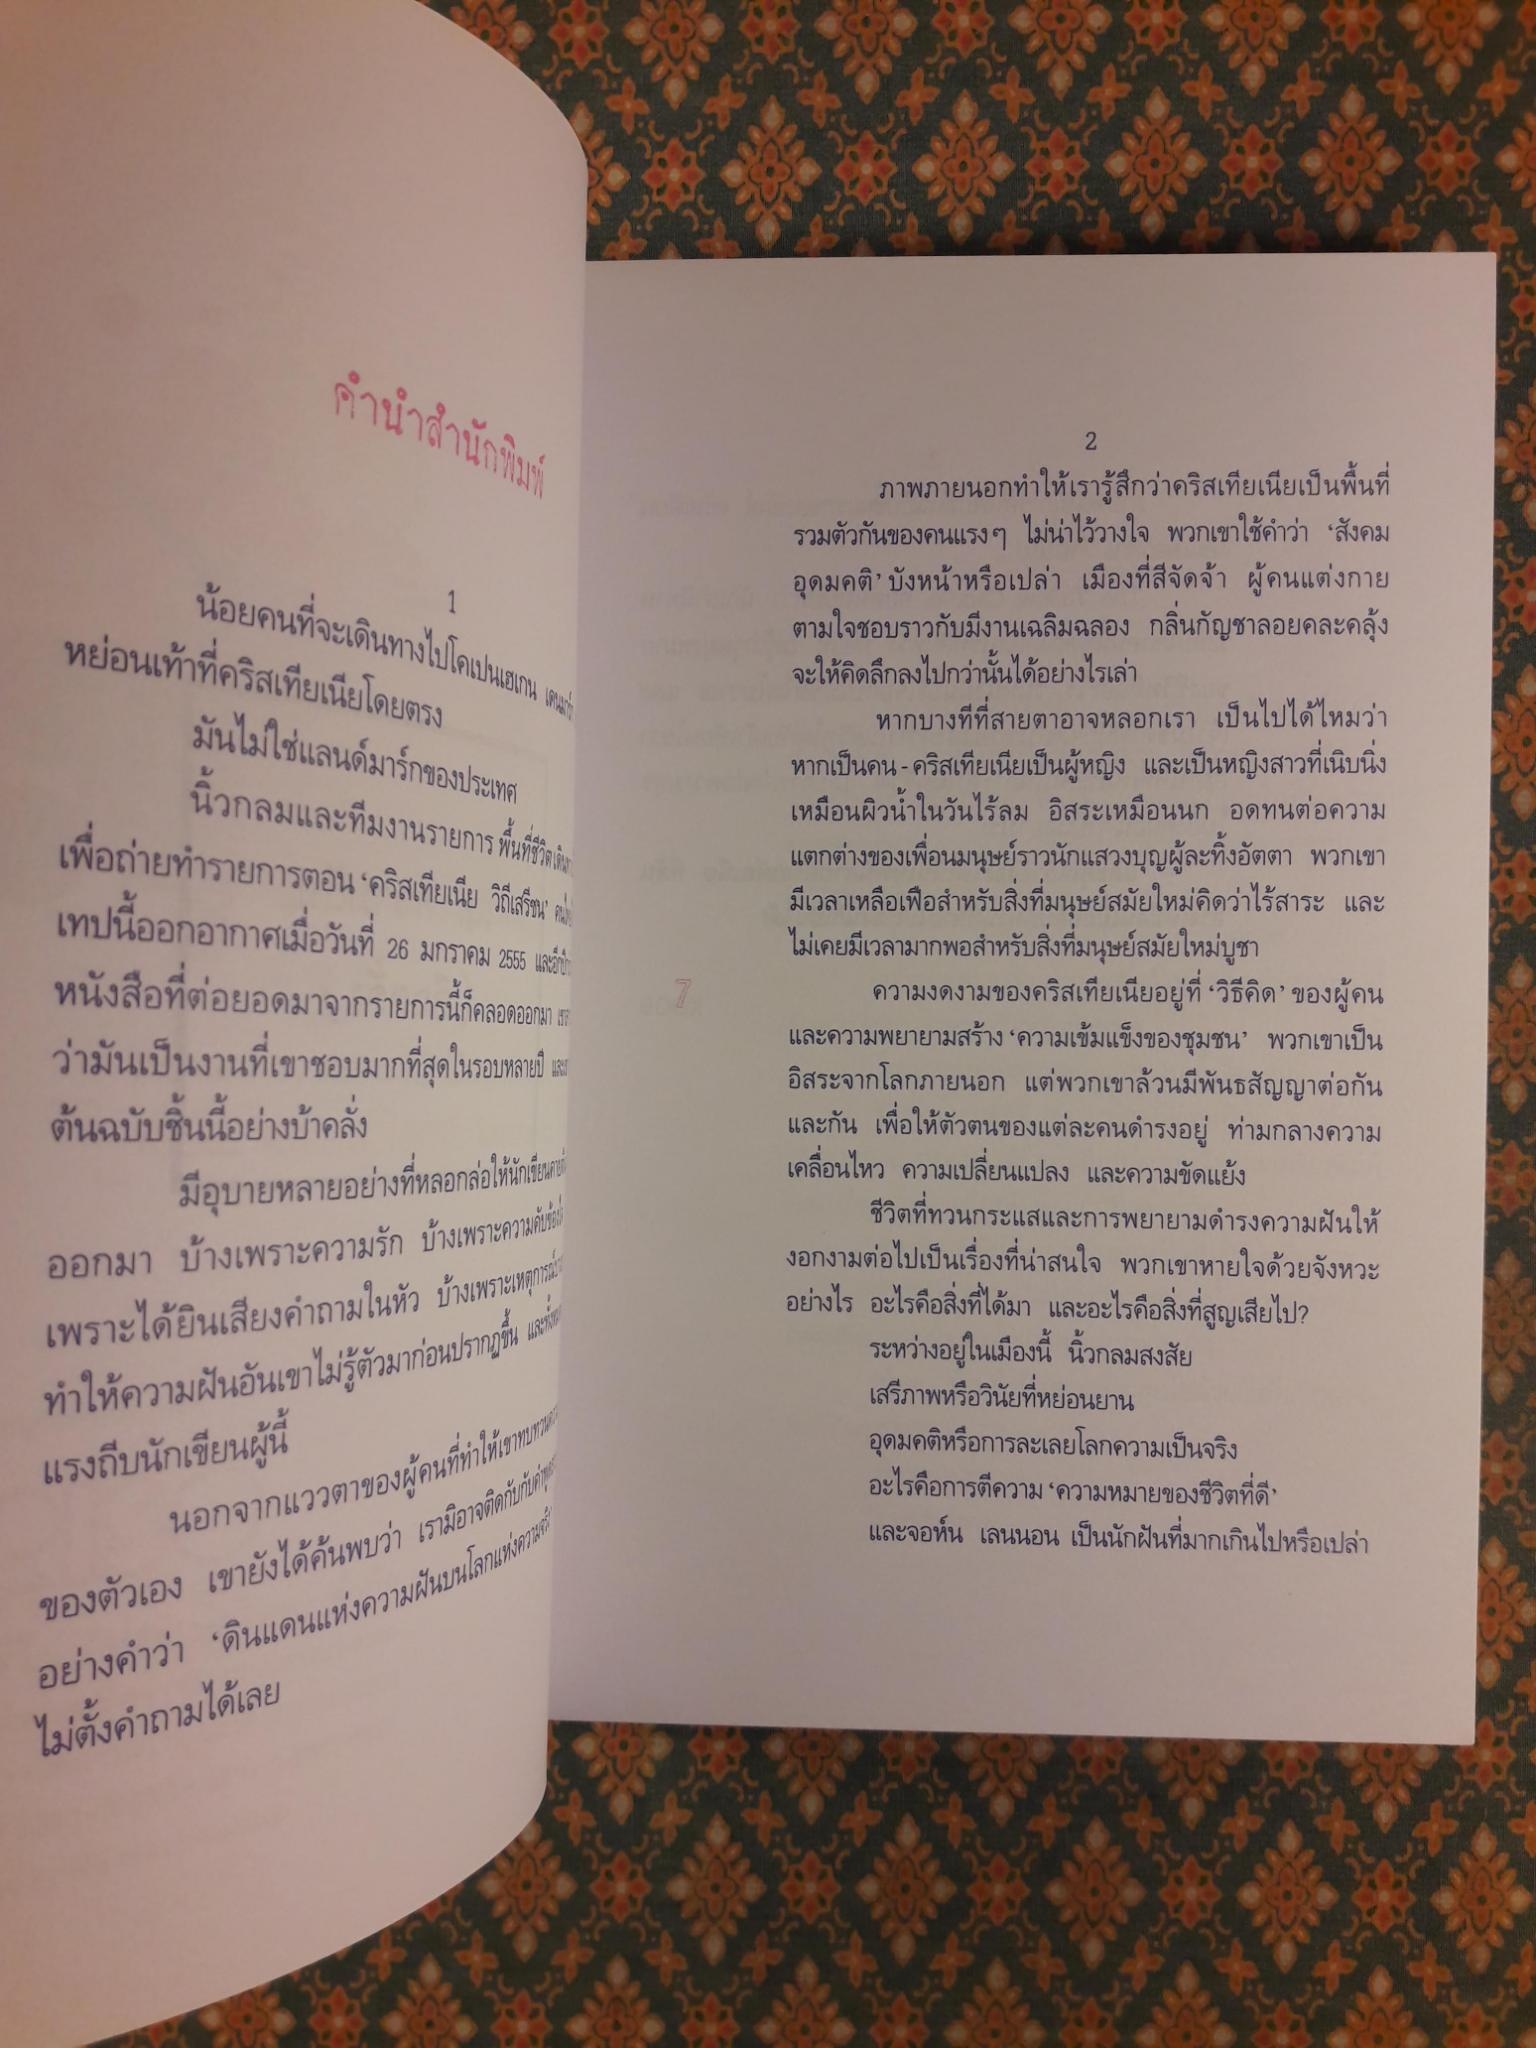 คำนำสำนักพิมพ์
1
น้อยคนที่จะเดินทางไปโคเปนเฮเกน เดนมาร์ก
หย่อนเท้าที่คริสเทียเนียโดยตรง
มันไม่ใช่แลนด์มาร์กของประเทศ
นิ้วกลมและทีมงานรายการ พื้นที่ชีวิต
เพื่อถ่ายทำรายการตอน ‘คริสเทียเนีย วิถีเสรีชน’
เทปนี้ออกอากาศเมื่อวันที่ 26 มกราคม 2555
หนังสือที่ต่อยอดมาจากรายการนี้ก็คลอดออกมา
ว่ามันเป็นงานที่เขาชอบมากที่สุดในรอบหลายปี
ต้นฉบับชิ้นนี้อย่างบ้าคลั่ง
มีอุบายหลายอย่างที่หลอกล่อให้นักเขียน
ออกมา บ้างเพราะความรัก บ้างเพราะความคับข้อง
เพราะได้ยินเสียงคำถามในหัว บ้างเพราะเหตุการณ์
ทำให้ความฝันอันเขาไม่รู้ตัวมาก่อนปรากฏขึ้น
แรงถีบนักเขียนผู้นี้
นอกจากแววตาของผู้คนที่ทำให้เขาทบทวน
ของตัวเอง เขายังได้ค้นพบว่า เรามิอาจติดกับกับ
อย่างคำว่า ‘ดินแดนแห่งความฝันบนโลกแห่งความจริง’
ไม่ตั้งคำถามได้เลย
2
ภาพภายนอกทำให้เรารู้สึกว่าคริสเทียเนียเป็นพื้นที่
รวมตัวกันของคนแรงๆ ไม่น่าไว้วางใจ พวกเขาใช้คำว่า ‘สังคม
อุดมคติ’ บังหน้าหรือเปล่า เมืองที่สีจัดจ้า ผู้คนแต่งกาย
ตามใจชอบราวกับมีงานเฉลิมฉลอง กลิ่นกัญชาลอยคละคลุ้ง
จะให้คิดลึกลงไปกว่านั้นได้อย่างไรเล่า
หากบางทีที่สายตาอาจหลอกเรา เป็นไปได้ไหมว่า
หากเป็นคน - คริสเทียเนียเป็นผู้หญิง และเป็นหญิงสาวที่เนิบนิ่ง
เหมือนผิวน้ำในวันไร้ลม อิสระเหมือนนก อดทนต่อความ
แตกต่างของเพื่อนมนุษย์ราวนักแสวงบุญผู้ละทิ้งอัตตา พวกเขา
มีเวลาเหลือเฟือสำหรับสิ่งที่มนุษย์สมัยใหม่คิดว่าไร้สาระ และ
ไม่เคยมีเวลามากพอสำหรับสิ่งที่มนุษย์สมัยใหม่บูชา
7
ความงดงามของคริสเทียเนียอยู่ที่ ‘วิธีคิด’ ของผู้คน
และความพยายามสร้าง ‘ความเข้มแข็งของชุมชน’ พวกเขาเป็น
อิสระจากโลกภายนอก แต่พวกเขาล้วนมีพันธสัญญาต่อกัน
และกัน เพื่อให้ตัวตนของแต่ละคนดำรงอยู่ ท่ามกลางความ
เคลื่อนไหว ความเปลี่ยนแปลง และความขัดแย้ง
ชีวิตที่ทวนกระแสและการพยายามดำรงความฝันให้
งอกงามต่อไปเป็นเรื่องที่น่าสนใจ พวกเขาหายใจด้วยจังหวะ
อย่างไร อะไรคือสิ่งที่ได้มา และอะไรคือสิ่งที่สูญเสียไป?
ระหว่างอยู่ในเมืองนี้ นิ้วกลมสงสัย
เสรีภาพหรือวินัยที่หย่อนยาน
อุดมคติหรือการละเลยโลกความเป็นจริง
อะไรคือการตีความ ‘ความหมายของชีวิตที่ดี’
และจอห์น เลนนอน เป็นนักฝันที่มากเกินไปหรือเปล่า